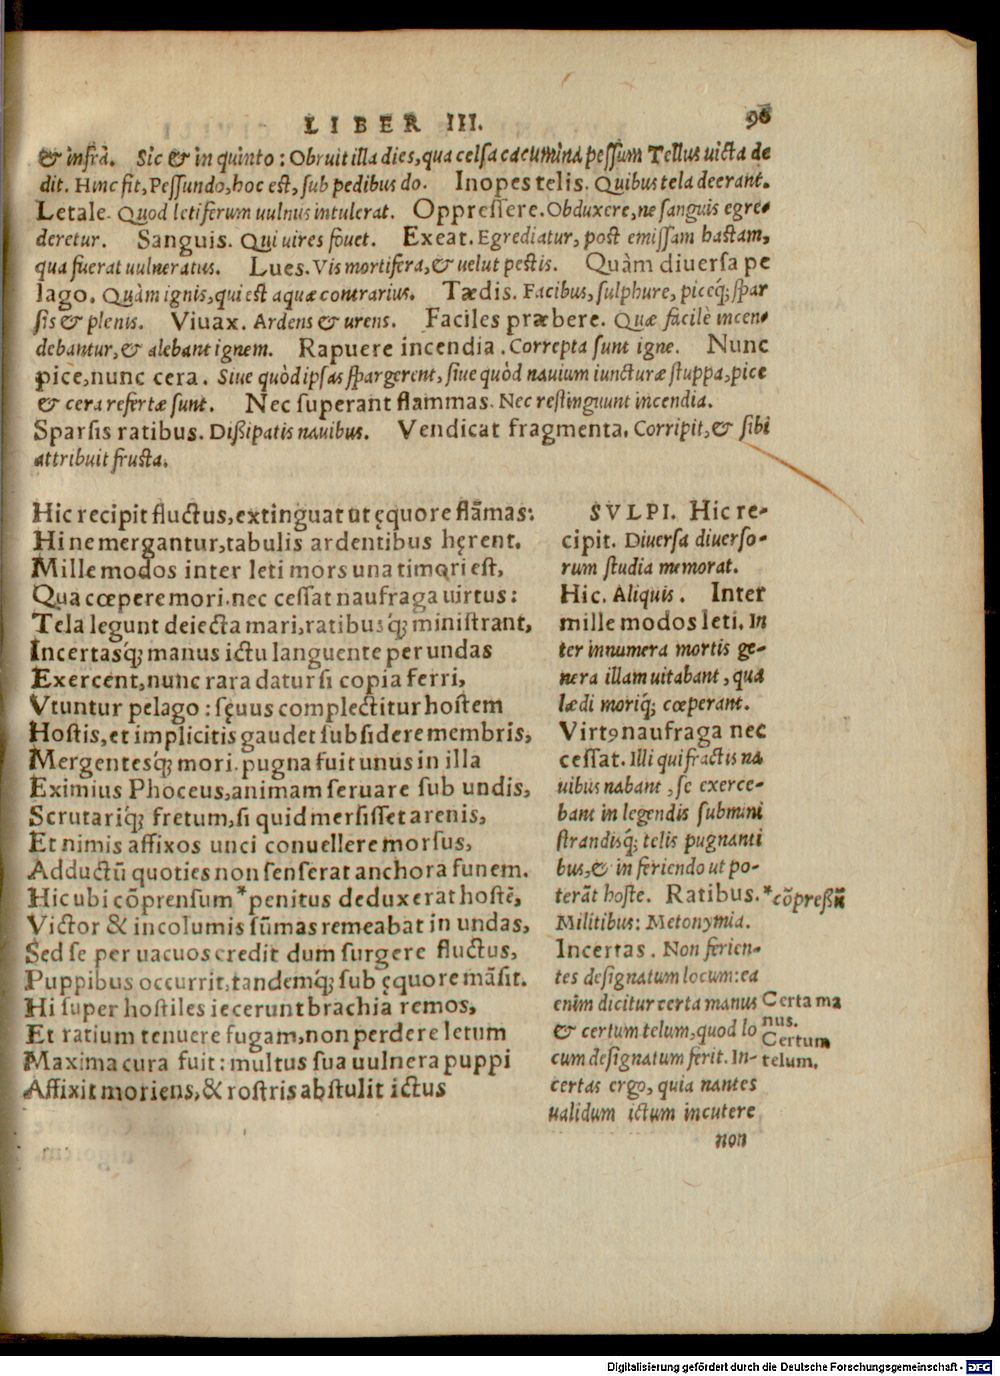 LIBER III. 96
& infrà. Sic & in quinto : Obruit illa dies, qua celsa cacumina pessum Tellus uicta de
dit. Hinc fit, Pessundo, hoc est, sub pedibus do. Inopes telis. Quibus tela deerant.
Letale. Quod letiferum uulnus intulerat. Oppressere. Obduxere, ne sanguis egre-
deretur. Sanguis. Qui uires fouet. Exeat. Egrediatur, post emissam hastam,
qua fuerat uulneratus. Lues. Vis mortifera, & uelut pestis. Quàm diuersa pe
lago. Quàm ignis, qui est aquæ contrarius. Tædis. Facibus, sulphure, piceq́; spar
sis & plenis. Viuax. Ardens & urens. Faciles præbere. Quæ facilè incen-
debantur, & alebant ignem. Rapuere incendia. Correpta sunt igne. Nunc
pice, nunc cera. Siue quòd ipsas spargerent, siue quòd nauium iuncturæ stuppa, pice
& cera refertæ sunt. Nec superant flammas. Nec restinguunt incendia.
Sparsis ratibus. Dißipatis nauibus. Vendicat fragmenta. Corripit, & sibi
attribuit frusta.
Hic recipit fluctus, extinguat ut ęquore flãmas:
Hi ne mergantur, tabulis ardentibus hęrent.
Mille modos inter leti mors una timori est,
Qua cœpere mori. nec cessat naufraga uirtus:
Tela legunt deiecta mari, ratibusq́; ministrant,
Incertasq́; manus ictu languente per undas
Exercent, nunc rara datur si copia ferri,
Vtuntur pelago : sęuus complectitur hostem
Hostis, et implicitis gaudet subsidere membris,
Mergentesq́; mori. pugna fuit unus in illa
Eximius Phoceus, animam seruare sub undis,
Scrutariq́; fretum, si quid mersisset arenis,
Et nimis affixos unci conuellere morsus,
Adductũ quoties non senserat anchora funem.
Hic ubi cõprensum * penitus deduxerat hostẽ,
Victor & incolumis sũmas remeabat in undas,
Sed se per uacuos credit dum surgere fluctus,
Puppibus occurrit, tandemq́; sub ęquore mãsit.
Hi super hostiles iecerunt brachia remos,
Et ratium tenuere fugam, non perdere letum
Maxima cura fuit : multus sua uulnera puppi
Affixit moriens, & rostris abstulit ictus
SVLPI. Hic re-
cipit. Diuersa diuerso-
rum studia memorat.
Hic. Aliquis. Inter
mille modos leti. In
ter innumera mortis ge-
nera illam uitabant, qua
lædi moriq́; cœperant.
Virtꝰ naufraga nec
cessat. Illi qui fractis na
uibus nabant, se exerce-
bant in legendis submini
strandisq́; telis pugnanti
bus, & in feriendo ut po-
terãt hoste. Ratibus. * cõpreßũ
Militibus: Metonymia.
Incertas. Non ferien-
tes designatum locum: ea
enim dicitur certa manus Certa ma
nus.
& certum telum, quod lo Certum
cum designatum ferit. In- telum.
certas ergo, quia nantes
ualidum ictum incutere
non
Digitalisierung gefördert durch die Deutsche Forschungsgemeinschaft - DFG